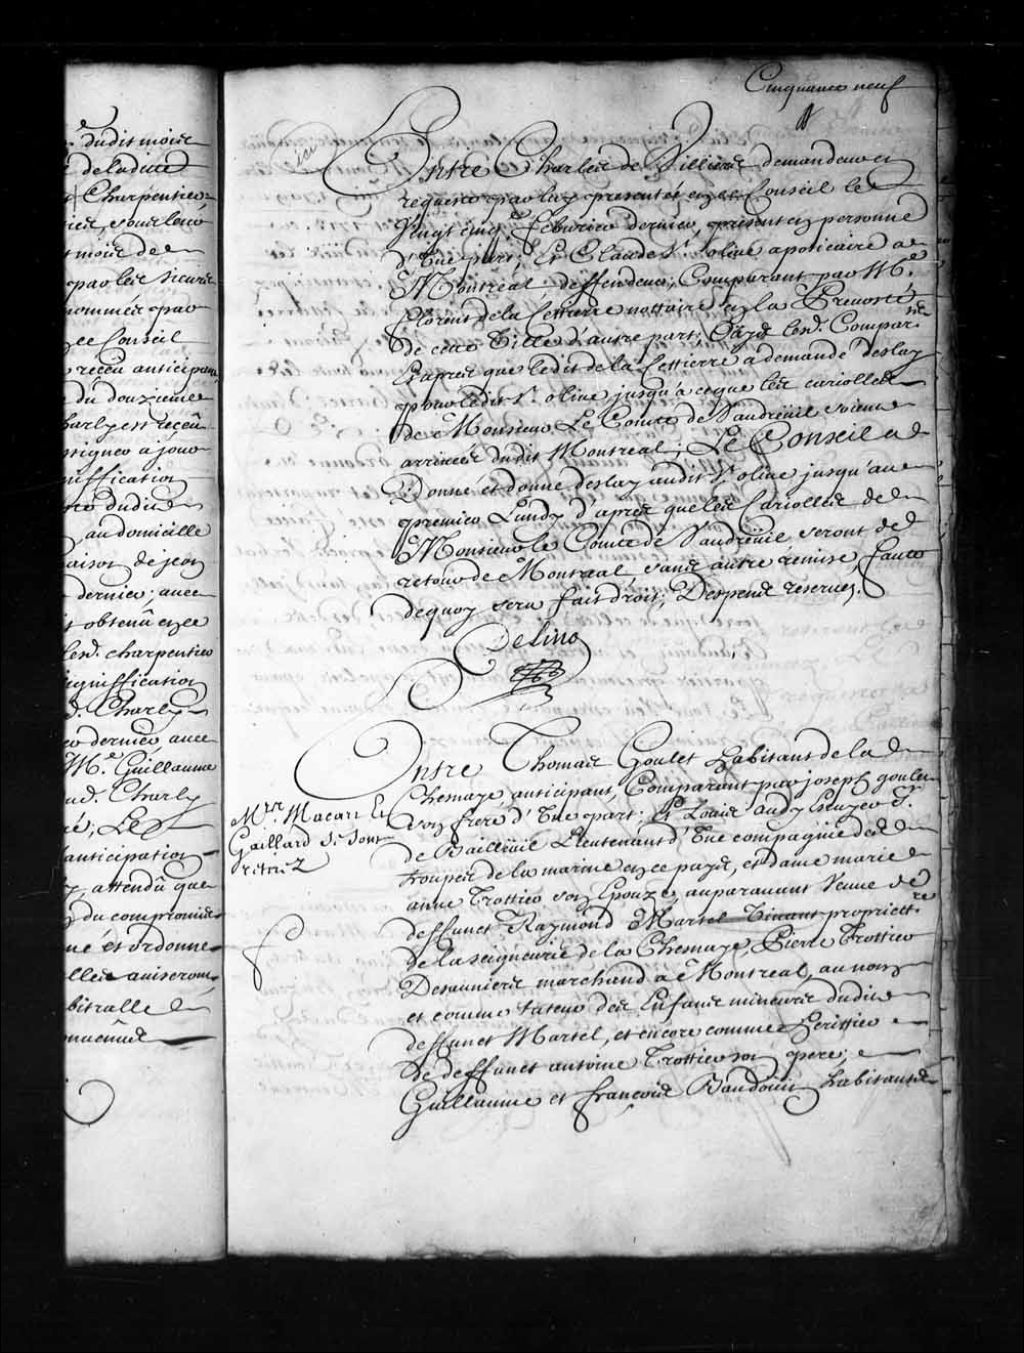 e
dudit mois
de ladite
Charpentier
pour leur
mois de
par les sieurs
nommés par
ce Conseil
receu anticipant
du douzieme
Charly est receu
assigner a jour
signiffication
dudit
au domicille
maison de jean
dernier; avec
obtenû en ce
led. Charpentier
signiffication
d. Charly
dernier, avec
Me. Guillaume
aud. Charly
Le
anticipation
attendû que
du compromis
né et ordonne
elles aviseront
bitralle
Cinquante neuf
Entre Charles de Villiers demandeur en
requeste par luy presentée en ce Conseil le
Vingt cinqe febvrier dernier, present en personne
d'Une part; Et Claude St. oline apoticaire a
Montréal, deffendeur, Comparant par Me.
florent de la Cettierre nottaire en la Prevosté
de cette Ville d'autre part; Oüys lesd. Comparans
Et apres que ledit de la Cettierre a demandé deslay
pour ledit St. oline jusqu'a ce que les cariolles
de Monsieur Le Comte de Vaudreüil soient
arrivées dudit Montreal; Le Conseil a
Donné et donne deslay audit St. oline jusqu'au
premier Lundy d'apres que les Cariolles de
Monsieur le Comte de Vaudreüil seront de
retour de Montreal, sans autre remise, faute
dequoy sera fait droit; Despens reservez.
Delino
Entre Thomas Goulet habitant de la
Chesnaye, anticipant, Comparant par joseph goulet
son frere d'Une part; Et Louis audy Escuyer Sr.
de Bailleüil Lieutenant d'Une compagnie des
trouppes de la marine en ce pays, et dame marie
anne Trottier son Epouze, auparavant Veuve de
deffunct Raymond Martel Vivant propriettre
de la seigneurie de la Chesnaye, Pierre Trottier
Desauniers marchand a Montreal, au nom
et comme tuteur des Enfans mineurs dudit
deffunct Martel, et encore comme heritier
de deffunct antoine Trottier son pere;
Guillaume et françois Baudoüin habitans
Mrs. Macart Et
Gaillard Se. sont
retirez